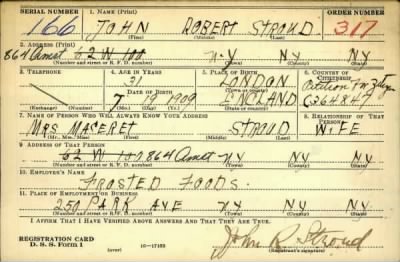 SERIAL NUMBER 1. NAME (Print) ORDER NUMBER
166 JOHN ROBERT STROUD 317
(First) (Middle) (Last)
2. ADDRESS (Print)
864 Amst 62 W 100 N.Y N.Y
(Number and street or R. F. D. number) (Town) (County) (State)
3. TELEPHONE 4. AGE IN YEARS 5. PLACE OF BIRTH 6. COUNTRY OF CITIZENSHIP
31 LONDON Petition
DATE OF BIRTH (Town or county)
7 1909 ENGLAND C364847
(Exchange) (Number) (Mo.) (Day) (Yr.) (State or country)
7. NAME OF PERSON WHO WILL ALWAYS KNOW YOUR ADDRESS 8. RELATIONSHIP OF THAT PERSON
MRS STROUD WIFE
(Mr., Mrs., Miss) (First) (Middle) (Last)
9. ADDRESS OF THAT PERSON
62 W 100 864 Amst NY NY
(Number and street or R. F. D. number) (Town) (County) (State)
10. EMPLOYER'S NAME
FROSTED FOODS.
11. PLACE OF EMPLOYMENT OR BUSINESS
250 PARK AVE NY NY
(Number and street or R. F. D. number) (Town) (County) (State)
I AFFIRM THAT I HAVE VERIFIED ABOVE ANSWERS AND THAT THEY ARE TRUE.
REGISTRATION CARD
D. S. S. Form 1 16—17105 John R Stroud
(Registrant's signature)